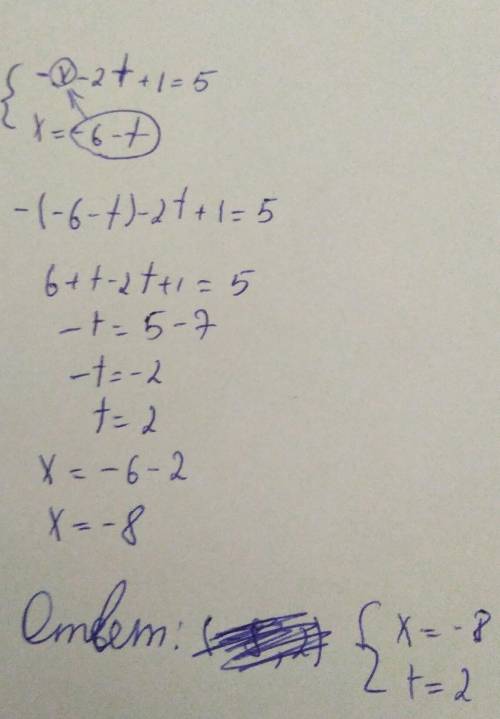 { -x-2t+1=5
x=-6-t
-(-6-t)-2t+1=5
6+t-2t+1=5
-t=5-7
-t=-2
t=2
x=-6-2
x=-8
Ответ: { x=-8
t=2